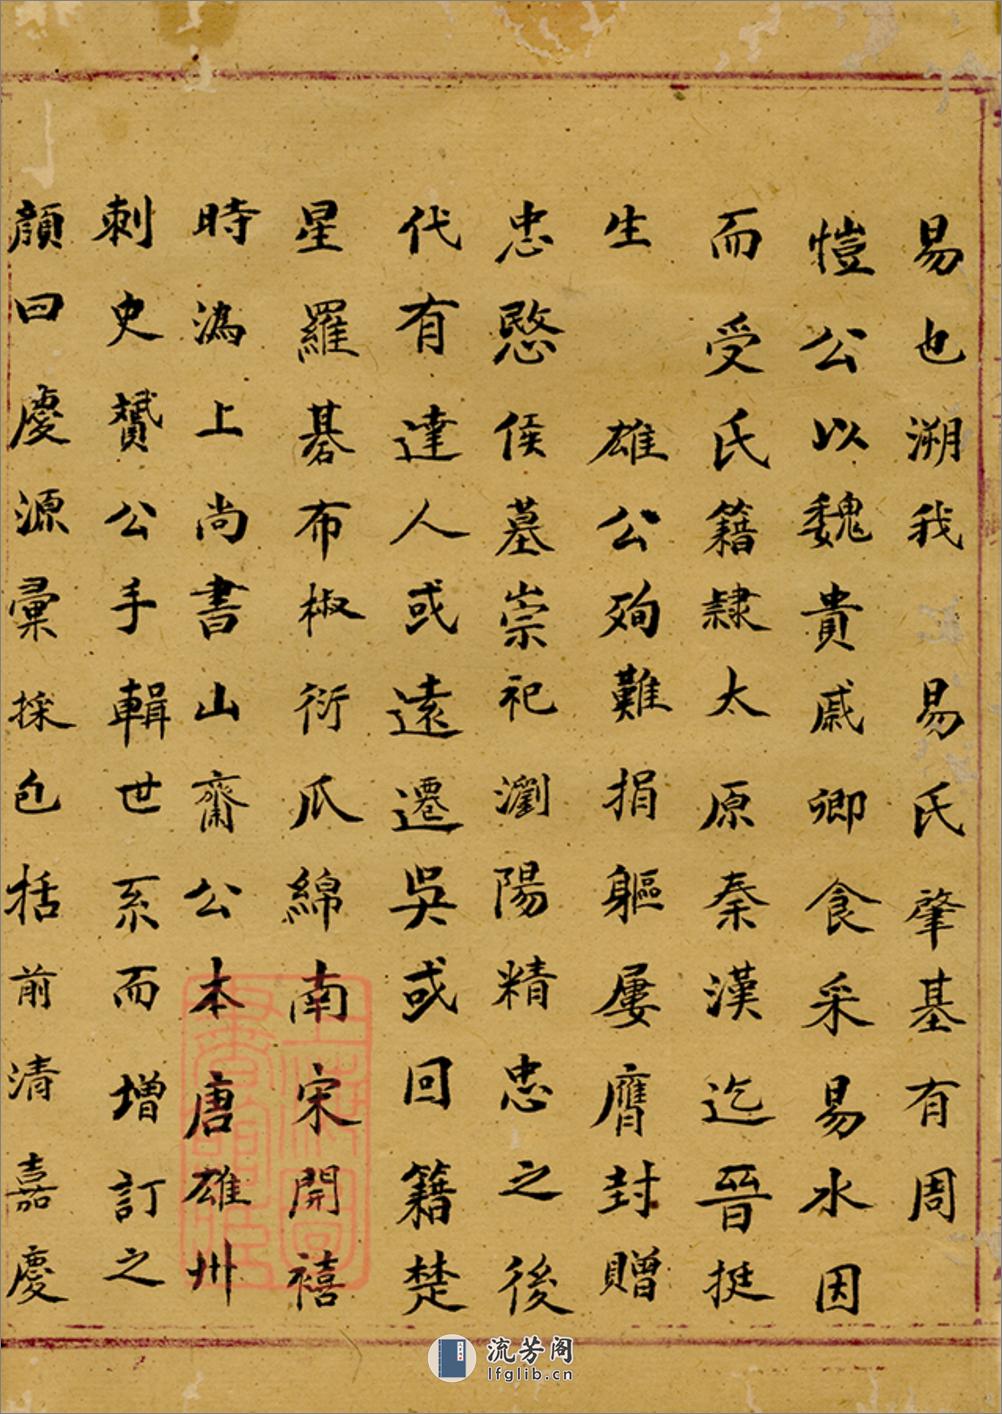 易也溯我 易氏肇基有周
愷公以魏貴戚卿食采易水因
而受氏籍隸太原秦漢迄晉挺
生 雄公殉難捐軀屢膺封贈
忠愍侯墓崇祀瀏陽精忠之後
代有達人或遠遷吳或回籍楚
星羅碁布椒衍瓜綿南宋開禧
時溈上尚書山齋公本唐雄州
刺史贇公手輯世系而增訂之
顏曰慶源彙採包括前清嘉慶
上海圖書館藏
流芳阁
lfglib.cn